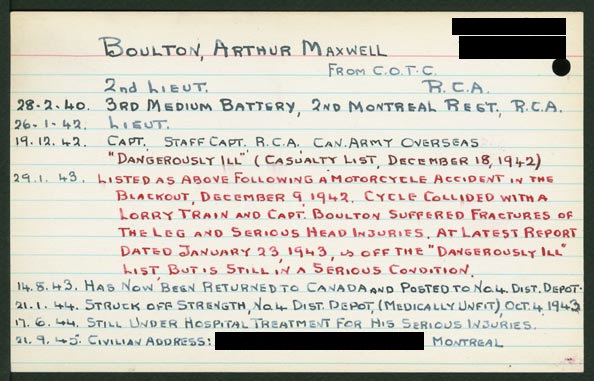 BOULTON, ARTHUR MAXWELL
FROM C.O.T.C.
2nd LIEUT. R.C.A.
28-2-40. 3RD MEDIUM BATTERY, 2ND MONTREAL REGT., R.C.A.
26-1-42. LIEUT.
19.12.42. CAPT., STAFF CAPT. R.C.A. CAN. ARMY OVERSEAS
"DANGEROUSLY ILL" (CASUALTY LIST, DECEMBER 18, 1942)
29.1.43. LISTED AS ABOVE FOLLOWING A MOTORCYCLE ACCIDENT IN THE
BLACKOUT, DECEMBER 9, 1942. CYCLE COLLIDED WITH A
LORRY TRAIN AND CAPT. BOULTON SUFFERED FRACTURES OF
THE LEG AND SERIOUS HEAD INJURIES. AT LATEST REPORT
DATED JANUARY 23, 1943, IS OFF THE "DANGEROUSLY ILL"
LIST, BUT IS STILL IN A SERIOUS CONDITION.
14.8.43. HAS NOW BEEN RETURNED TO CANADA AND POSTED TO NO.4. DIST. DEPOT.
21.1.44. STRUCK OFF STRENGTH, NO.4 DIST. DEPOT, (MEDICALLY UNFIT) OCT. 4, 1943
17.6.44. STILL UNDER HOSPITAL TREATMENT FOR HIS SERIOUS INJURIES.
21.9.45. CIVILIAN ADDRESS: MONTREAL